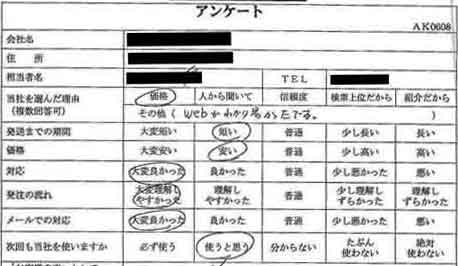 アンケート
AK0608
会社名
住 所
担当者名 TEL
当社を選んだ理由（複数回答可） 価格 人から聞いて 信頼度 検索上位だから 紹介だから
その他（ Webがわかり易かったです。 ）
発送までの期間 大変短い 短い 普通 少し長い 長い
価格 大変安い 安い 普通 少し高い 高い
対応 大変良かった 良かった 普通 少し悪かった 悪い
発注の流れ 大変理解しやすかった 理解しやすかった 普通 少し理解しずらかった 理解しずらかった
メールでの対応 大変良かった 良かった 普通 少し悪かった 悪い
次回も当社を使いますか 必ず使う 使うと思う 分からない たぶん使わない 絶対使わない